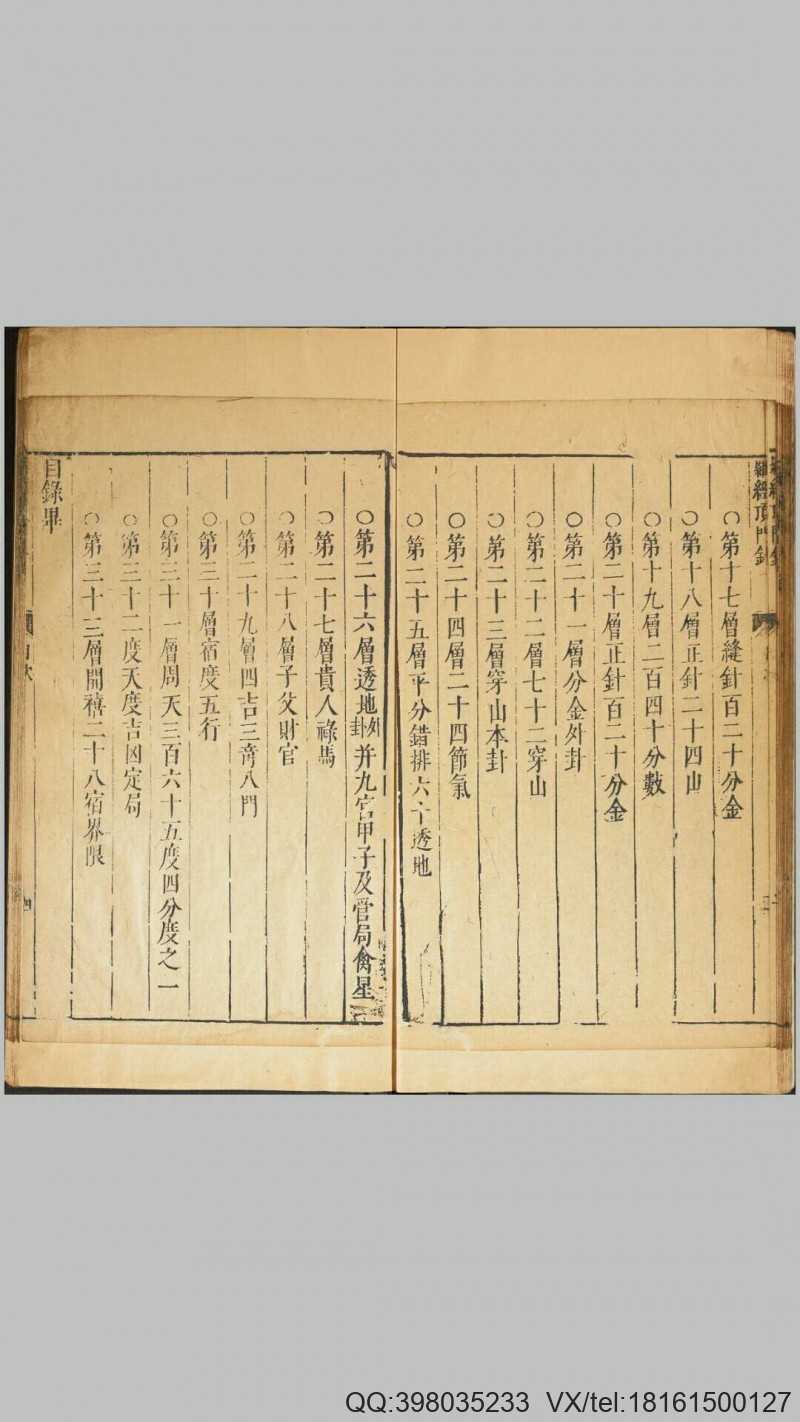 羅經頂門針
○第十七層縫針百二十分金
○第十八層正針二十四山
○第十九層二百四十分數
○第二十層正針百二十分金
○第二十一層分金外卦
○第二十二層七十二穿山
○第二十三層穿山本卦
○第二十四層二十四節氣
○第二十五層平分錯排六十透地
○第二十六層透地外卦并九宮甲子及管局禽星
○第二十七層貴人祿馬
○第二十八層子父財官
○第二十九層四吉三奇八門
○第三十層宿度五行
○第三十一層周天三百六十五度四分度之一
○第三十二度天度吉凶定局
○第三十三層開禧二十八宿界限
目錄畢
四
QQ:398035233 VX/tel:18161500127